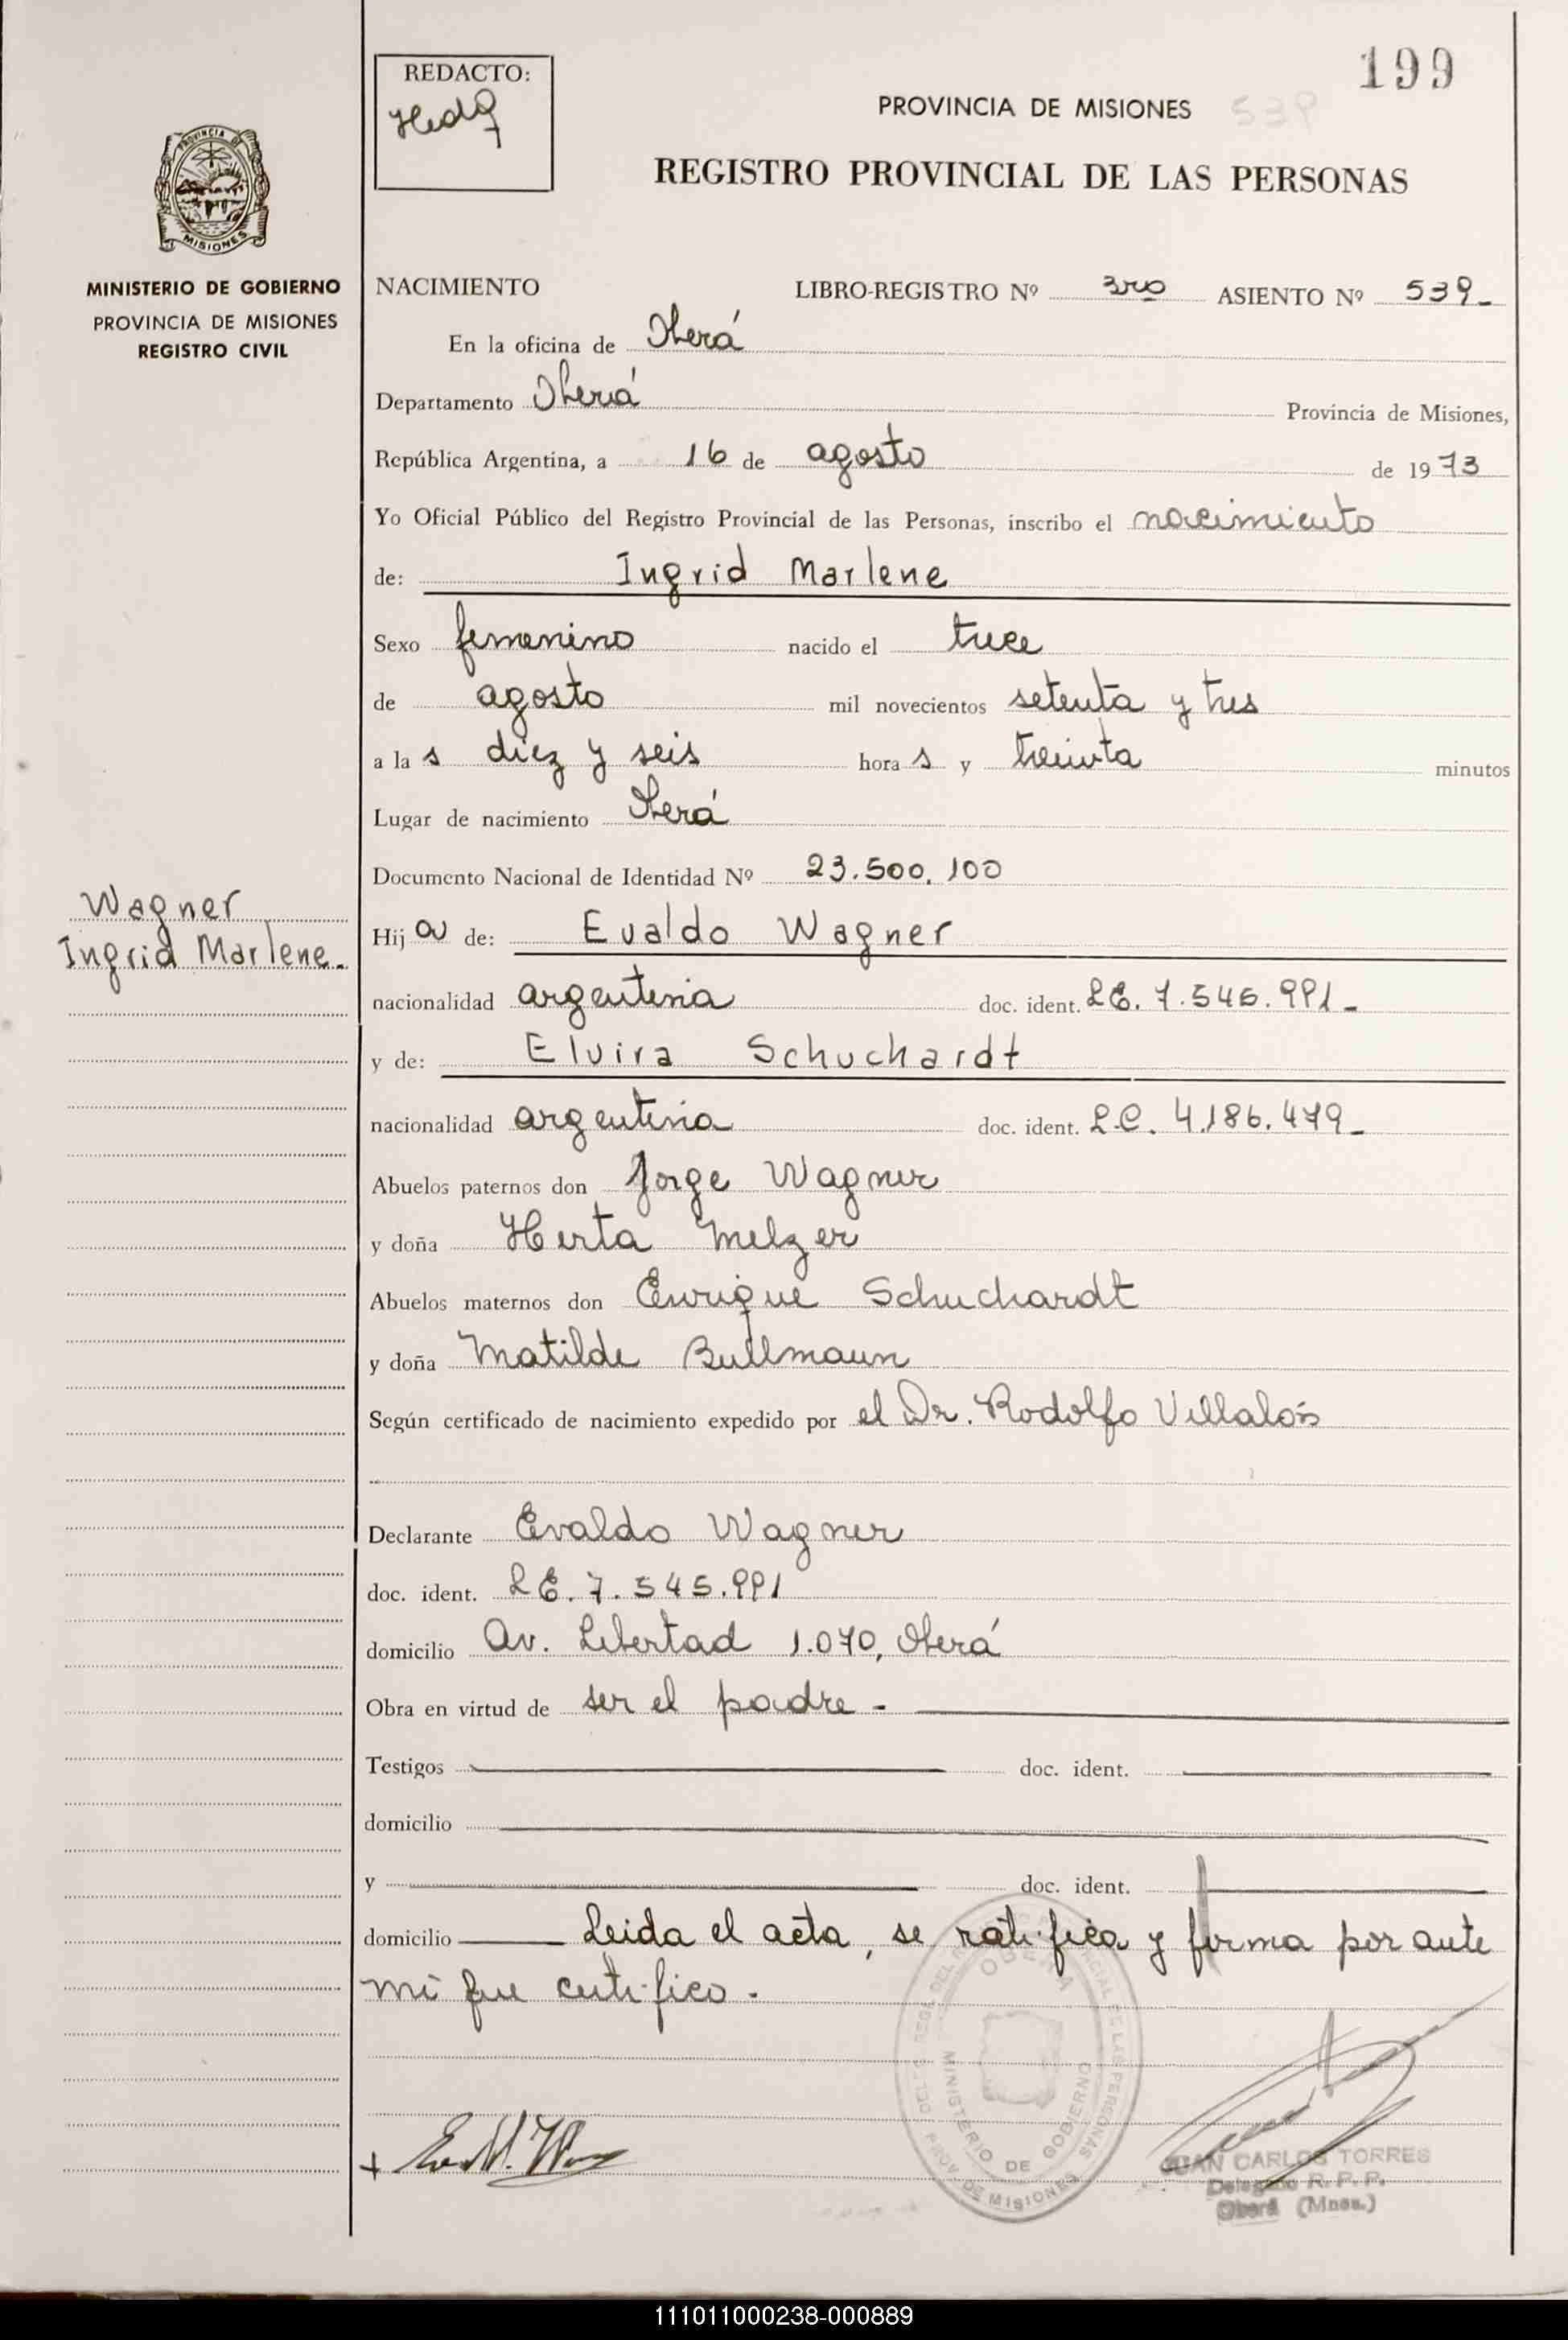 199
REDACTO:
PROVINCIA DE MISIONES 539
REGISTRO PROVINCIAL DE LAS PERSONAS
PROVINCIA DE
MISIONES
MINISTERIO DE GOBIERNO
PROVINCIA DE MISIONES
REGISTRO CIVIL
NACIMIENTO LIBRO-REGISTRO Nº 3ro ASIENTO Nº 539-
En la oficina de Oberá
Departamento Oberá Provincia de Misiones,
República Argentina, a 16 de agosto de 1973
Yo Oficial Público del Registro Provincial de las Personas, inscribo el nacimiento
de: Ingrid Marlene
Sexo femenino nacido el trece
de agosto mil novecientos setenta y tres
a la s diez y seis hora s y treinta minutos
Lugar de nacimiento Oberá
Documento Nacional de Identidad Nº 23.500.100
Wagner
Ingrid Marlene.-
Hij a de: Evaldo Wagner
nacionalidad argentina doc. ident. LE. 7.545.991-
y de: Elvira Schuchardt
nacionalidad argentina doc. ident. L.C. 4.186.479-
Abuelos paternos don Jorge Wagner
y doña Herta Melzer
Abuelos maternos don Enrique Schuchardt
y doña Matilde Bullmann
Según certificado de nacimiento expedido por el Dr. Rodolfo
Declarante Evaldo Wagner
doc. ident. LE. 7.545.991
domicilio Av. Libertad 1.070, Oberá
Obra en virtud de ser el padre -
Testigos doc. ident.
domicilio
y doc. ident.
domicilio Leida el acta, se ratifica y firma por ante
mi que certifico.
OBERA
MINISTERIO DE GOBIERNO
PROV. DE MISIONES
JUAN CARLOS TORRES
Delegado R. P. P.
Oberá (Mnes.)
111011000238-000889